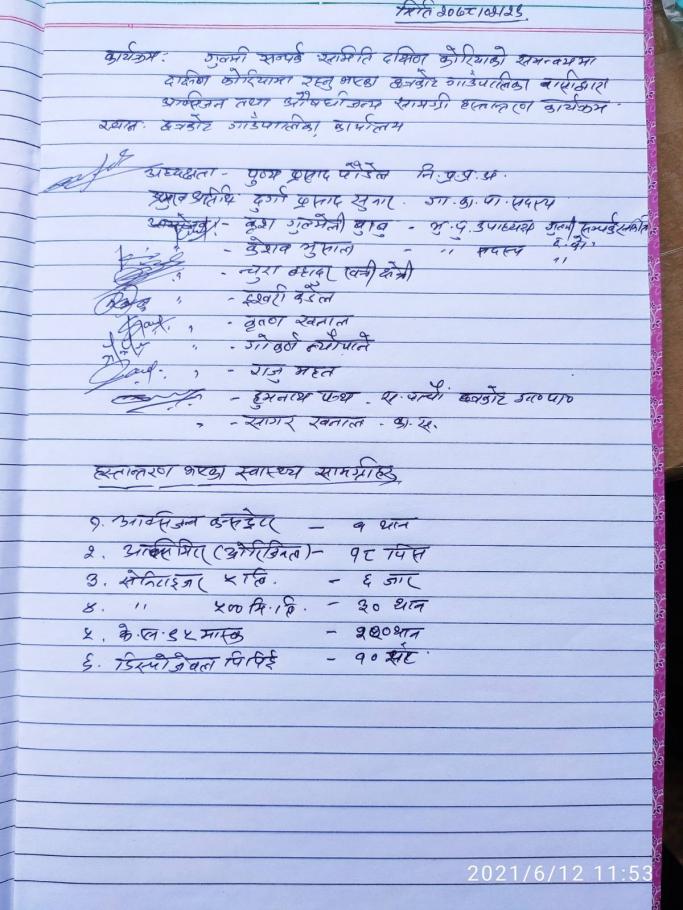 मिति २०७८।०२।२९
कार्यक्रम: गुल्मी सम्पर्क समिति दक्षिण कोरियाको समन्वयमा
दक्षिण कोरियामा रहनु भएका छत्रकोट गाउँपालिका वासीद्वारा
अक्सिजन तथा औषधीजन्य सामग्री हस्तान्तरण कार्यक्रम
स्थान: छत्रकोट गाउँपालिका कार्यालय
अध्यक्षता - पुण्य प्रसाद पौडेल नि.प्र.प्र.अ.
प्रमुख अतिथि दुर्गा प्रसाद सुनार. गा.का.पा.सदस्य
- कुश गुल्मेली बाबु - भु.पु. उपाध्यक्ष गुल्मी सम्पर्क समिति
- केशव भुसाल - " सदस्य द.को.
" - चुरा बहादुर खत्री क्षेत्री "
" - ईश्वरी कँडेल
" - कृष्ण खनाल
" - गोकर्ण न्यौपाने
" - राजु महत
- हुमनाथ पन्थ - छत्रकोट गा०पा०
" - सागर खनाल - का.स.
हस्तान्तरण भएका स्वास्थ्य सामग्रीहरु
१. अक्सिजन कन्सन्ट्रेटर - १ थान
२. अक्सिमिटर (ओरिजिनल) - १८ पिस
३. सेनिटाइजर ५ लि. - ६ जार
४. " ५०० मि.लि. - ३० थान
५. के.एन.९५ मास्क - २२० थान
६. डिस्पोजेबल पिपिई - १० सेट
2021/6/12 11:53